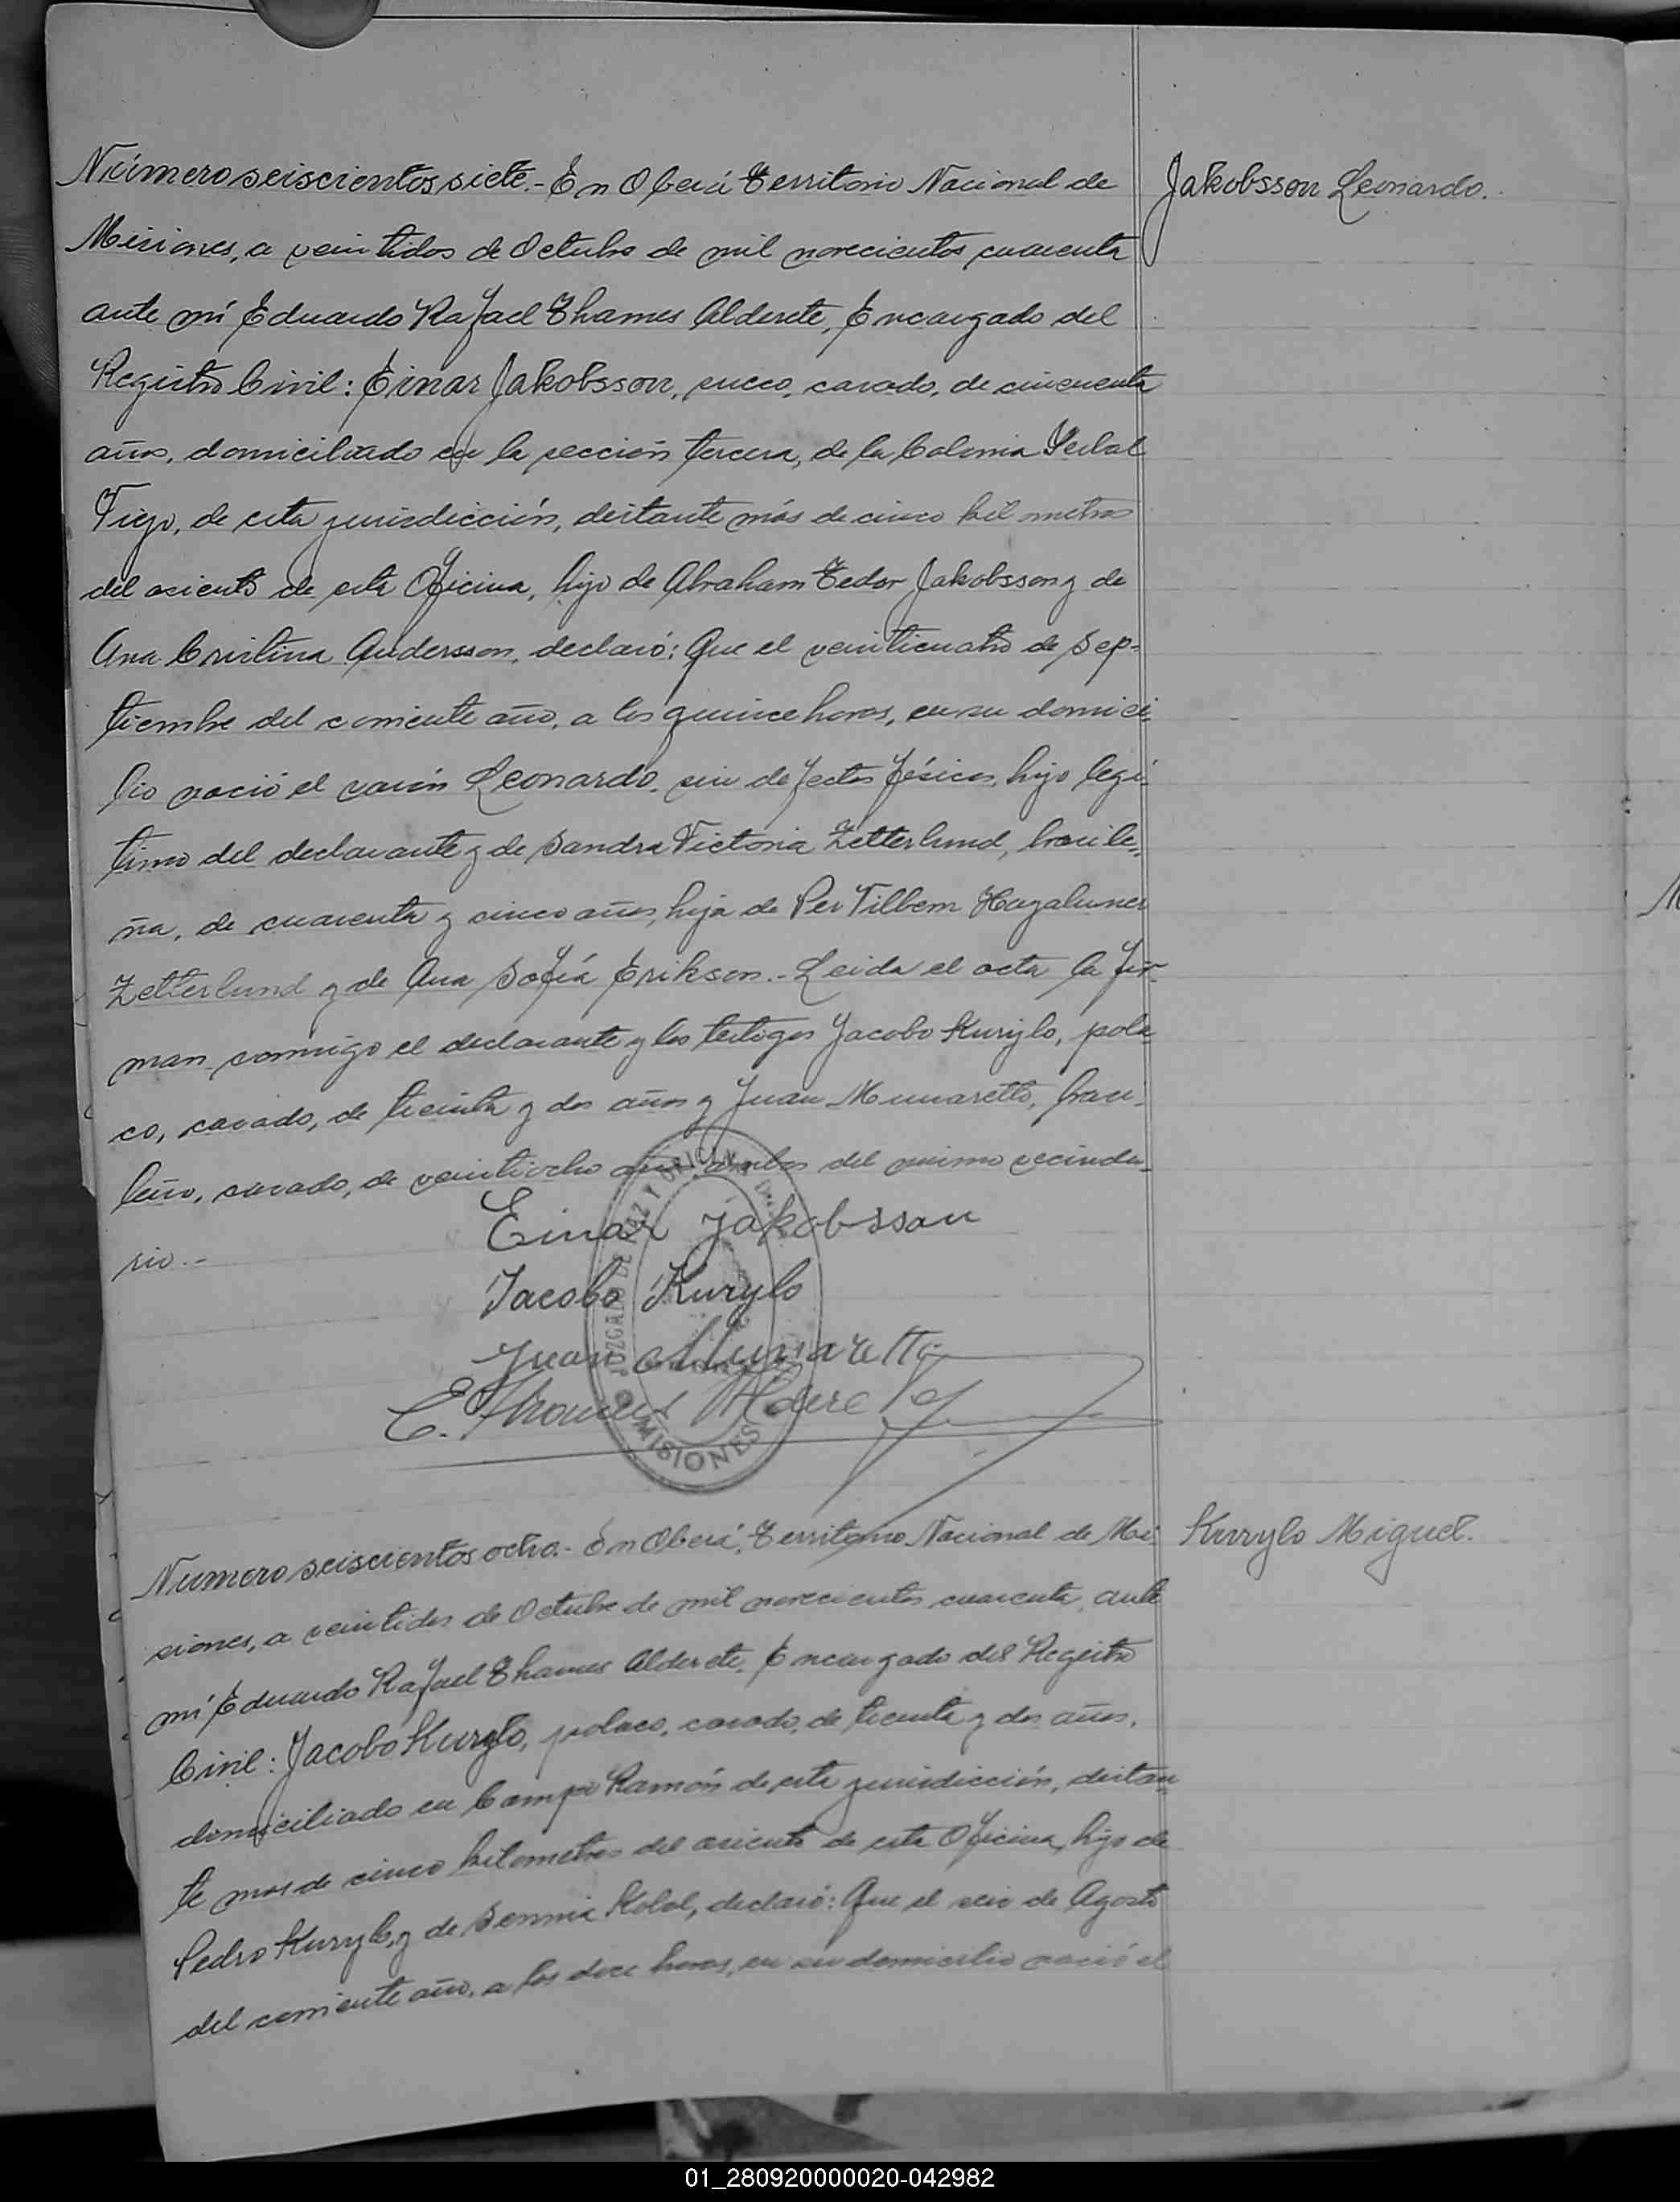 Número seiscientos siete.- En Oberá Territorio Nacional de
Misiones, a veintidos de Octubre de mil novecientos cuarenta
ante mí Eduardo Rafael Thames Alderete, Encargado del
Registro Civil: Einar Jakobsson, sueco, casado, de cincuenta
años, domiciliado en la sección tercera, de la Colonia Yerbal
Viejo, de esta jurisdicción, distante más de cinco kilometros
del asiento de esta Oficina, hijo de Abraham Tedor Jakobsson y de
Ana Cristina Andersson, declaró: Que el veinticuatro de Sep-
tiembre del corriente año, a las quince horas, en su domici-
lio nació el varón Leonardo, sin defectos físicos, hijo legí-
timo del declarante y de Sandra Victoria Zetterlund, brasile-
ña, de cuarenta y cinco años, hija de Per Vilbem
Zetterlund y de Ana Sofía Erikson.- Leida el acta la fir-
man conmigo el declarante y los testigos Jacobo Kurylo, pola-
co, casado, de treinta y dos años y Juan Munaretto, brasi-
leño, casado, de veintiocho años ambos del mismo vecinda-
rio.-
Einar Jakobsson
Jacobo Kurylo
Juan Munaretto
E. Thames Alderete
JUZGADO DE PAZ Y OFICINA
MISIONES
Jakobsson Leonardo.
Numero seiscientos ocho.- En Oberá, Territorio Nacional de Mi-
siones, a veintidos de Octubre de mil novecientos cuarenta, ante
mí Eduardo Rafael Thames Alderete, Encargado del Registro
Civil: Jacobo Kurylo, polaco, casado, de treinta y dos años,
domiciliado en Campo Ramón de esta jurisdicción, distan-
te mas de cinco kilometros del asiento de esta Oficina, hijo de
Pedro Kurylo, y de Kobal, declaró: Que el seis de Agosto
del corriente año, a las doce horas, en su domicilio nació el
Kurylo Miguel.
01_280920000020-042982